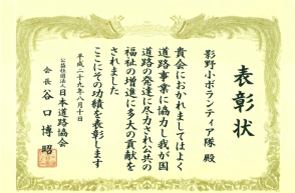 表彰状
影野小ボランティア隊 殿
貴会におかれましてはよく
道路事業に協力し我が国
道路の発達に尽力され公共の
福祉の増進に多大の貢献を
されました
ここにその功績を表彰します
平成二十八年八月十日
公益社団法人 日本道路協会
会長 谷口博昭